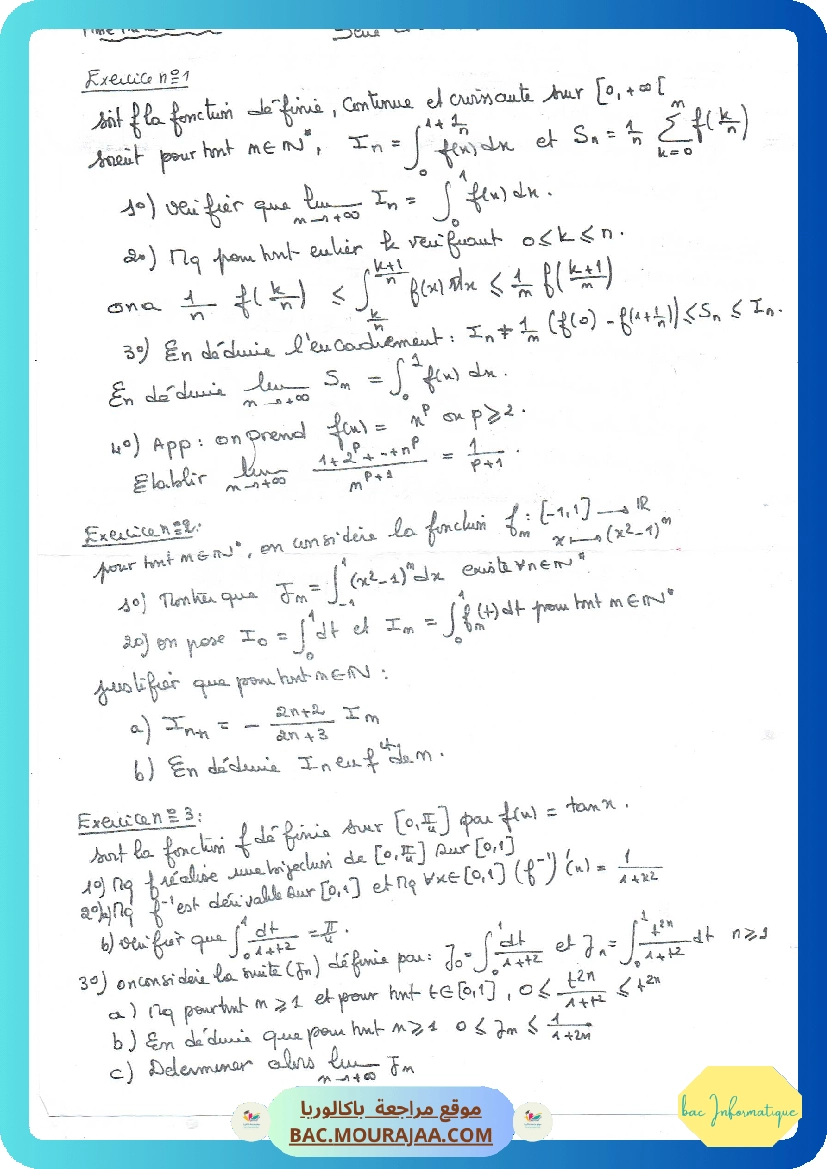 Exercice n°1
soit f la fonction définie, continue et croissante sur [0, +∞[
soient pour tout n ∈ ℕ*, I_n = ∫_0^{1+1/n} f(x) dx et S_n = 1/n ∑_{k=0}^{n} f(k/n)
1°) verifier que lim_{n→+∞} I_n = ∫_0^1 f(x) dx.
2°) Mq pour tout entier k verifiant 0 ≤ k ≤ n.
on a 1/n f(k/n) ≤ ∫_{k/n}^{(k+1)/n} f(x) dx ≤ 1/n f((k+1)/n)
3°) En déduire l'encadrement : I_n + 1/n (f(0) - f(1+1/n)) ≤ S_n ≤ I_n.
En déduire lim_{n→+∞} S_n = ∫_0^1 f(x) dx.
4°) App : on prend f(x) = x^p où p ≥ 2.
Etablir lim_{n→+∞} (1+2^p+--+n^p)/(n^{p+1}) = 1/(p+1).
Exercice n°2:
pour tout n ∈ ℕ*, on considère la fonction f_n : [-1,1] → ℝ
x ↦ (x²-1)^n
1°) Montrer que J_n = ∫_{-1}^1 (x²-1)^n dx existe ∀n ∈ ℕ*
2°) on pose I_0 = ∫_0^1 dt et I_n = ∫_0^1 f_n(t) dt pour tout n ∈ ℕ*
justifier que pour tout n ∈ ℕ :
a) I_{n+1} = - (2n+2)/(2n+3) I_n
b) En déduire I_n en f^{ct} de n.
Exercice n°3:
soit la fonction f définie sur [0, π/4] par f(x) = tan x.
1°) Mq f réalise une bijection de [0, π/4] sur [0,1]
2°) a) Mq f⁻¹ est dérivable sur [0,1] et Mq ∀x ∈ [0,1] (f⁻¹)'(x) = 1/(1+x²)
b) verifier que ∫_0^1 dt/(1+t²) = π/4.
3°) on considère la suite (J_n) définie par : J_0 = ∫_0^1 dt/(1+t²) et J_n = ∫_0^1 t^{2n}/(1+t²) dt n ≥ 1
a) Mq pour tout n ≥ 1 et pour tout t ∈ [0,1], 0 ≤ t^{2n}/(1+t²) ≤ t^{2n}
b) En déduire que pour tout n ≥ 1 0 ≤ J_n ≤ 1/(1+2n)
c) Determiner alors lim_{n→+∞} J_n
موقع مراجعة باكالوريا
BAC.MOURAJAA.COM
bac Informatique